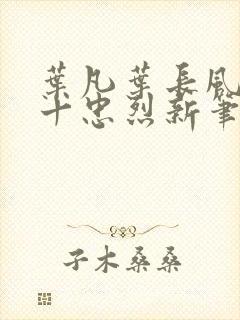 葉凡葉長風
十忠烈新筆
子木桑桑